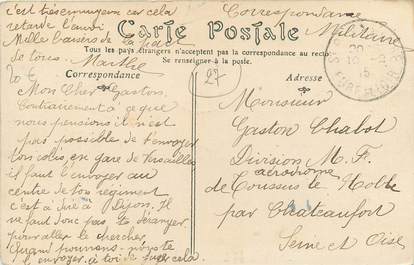 c'est très ennuyeux car cela
retarde l'envoi
Mille baisers de la part
de tous. Marthe
Correspondance
Militaire
Carte Postale
Tous les pays étrangers n'acceptent pas la correspondance au recto
Se renseigner à la poste.
Correspondance
Adresse
27
20
15
Mon Cher Gaston.
Contrairement à ce que
nous pensions il n'est
pas possible de t'envoyer
ton colis, en gare de Versailles
il faut l'envoyer au
centre de ton régiment
c'est à dire à Dijon. Il
ne faut donc pas te déranger
pour aller le chercher
Quand pourrons-nous te
l'envoyer à toi de juger cela
Monsieur
Gaston Chabot
Division M. F.
aérodrome
de Toussus le Noble
par Chateaufort
Seine et Oise